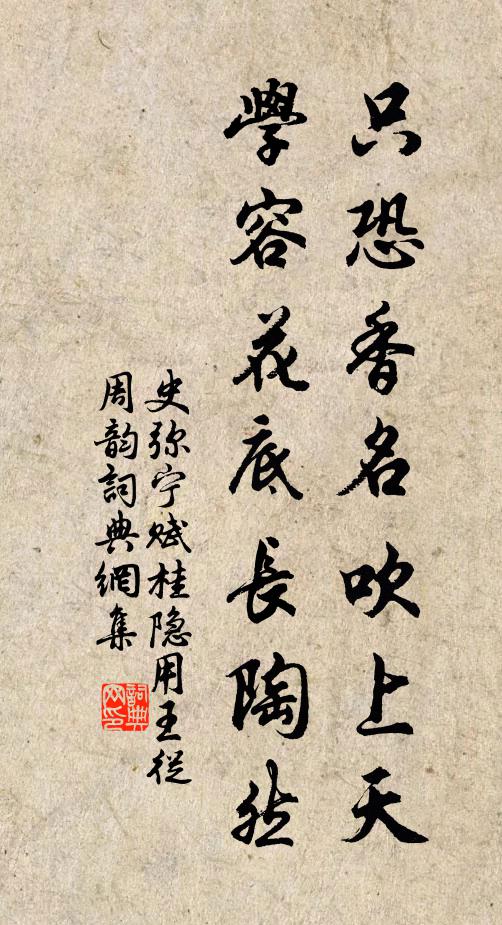 只恐香名吹上天
學容花底長陶然
史弥宁赋桂隐用王從
周韵詞典網集
詞典
网印